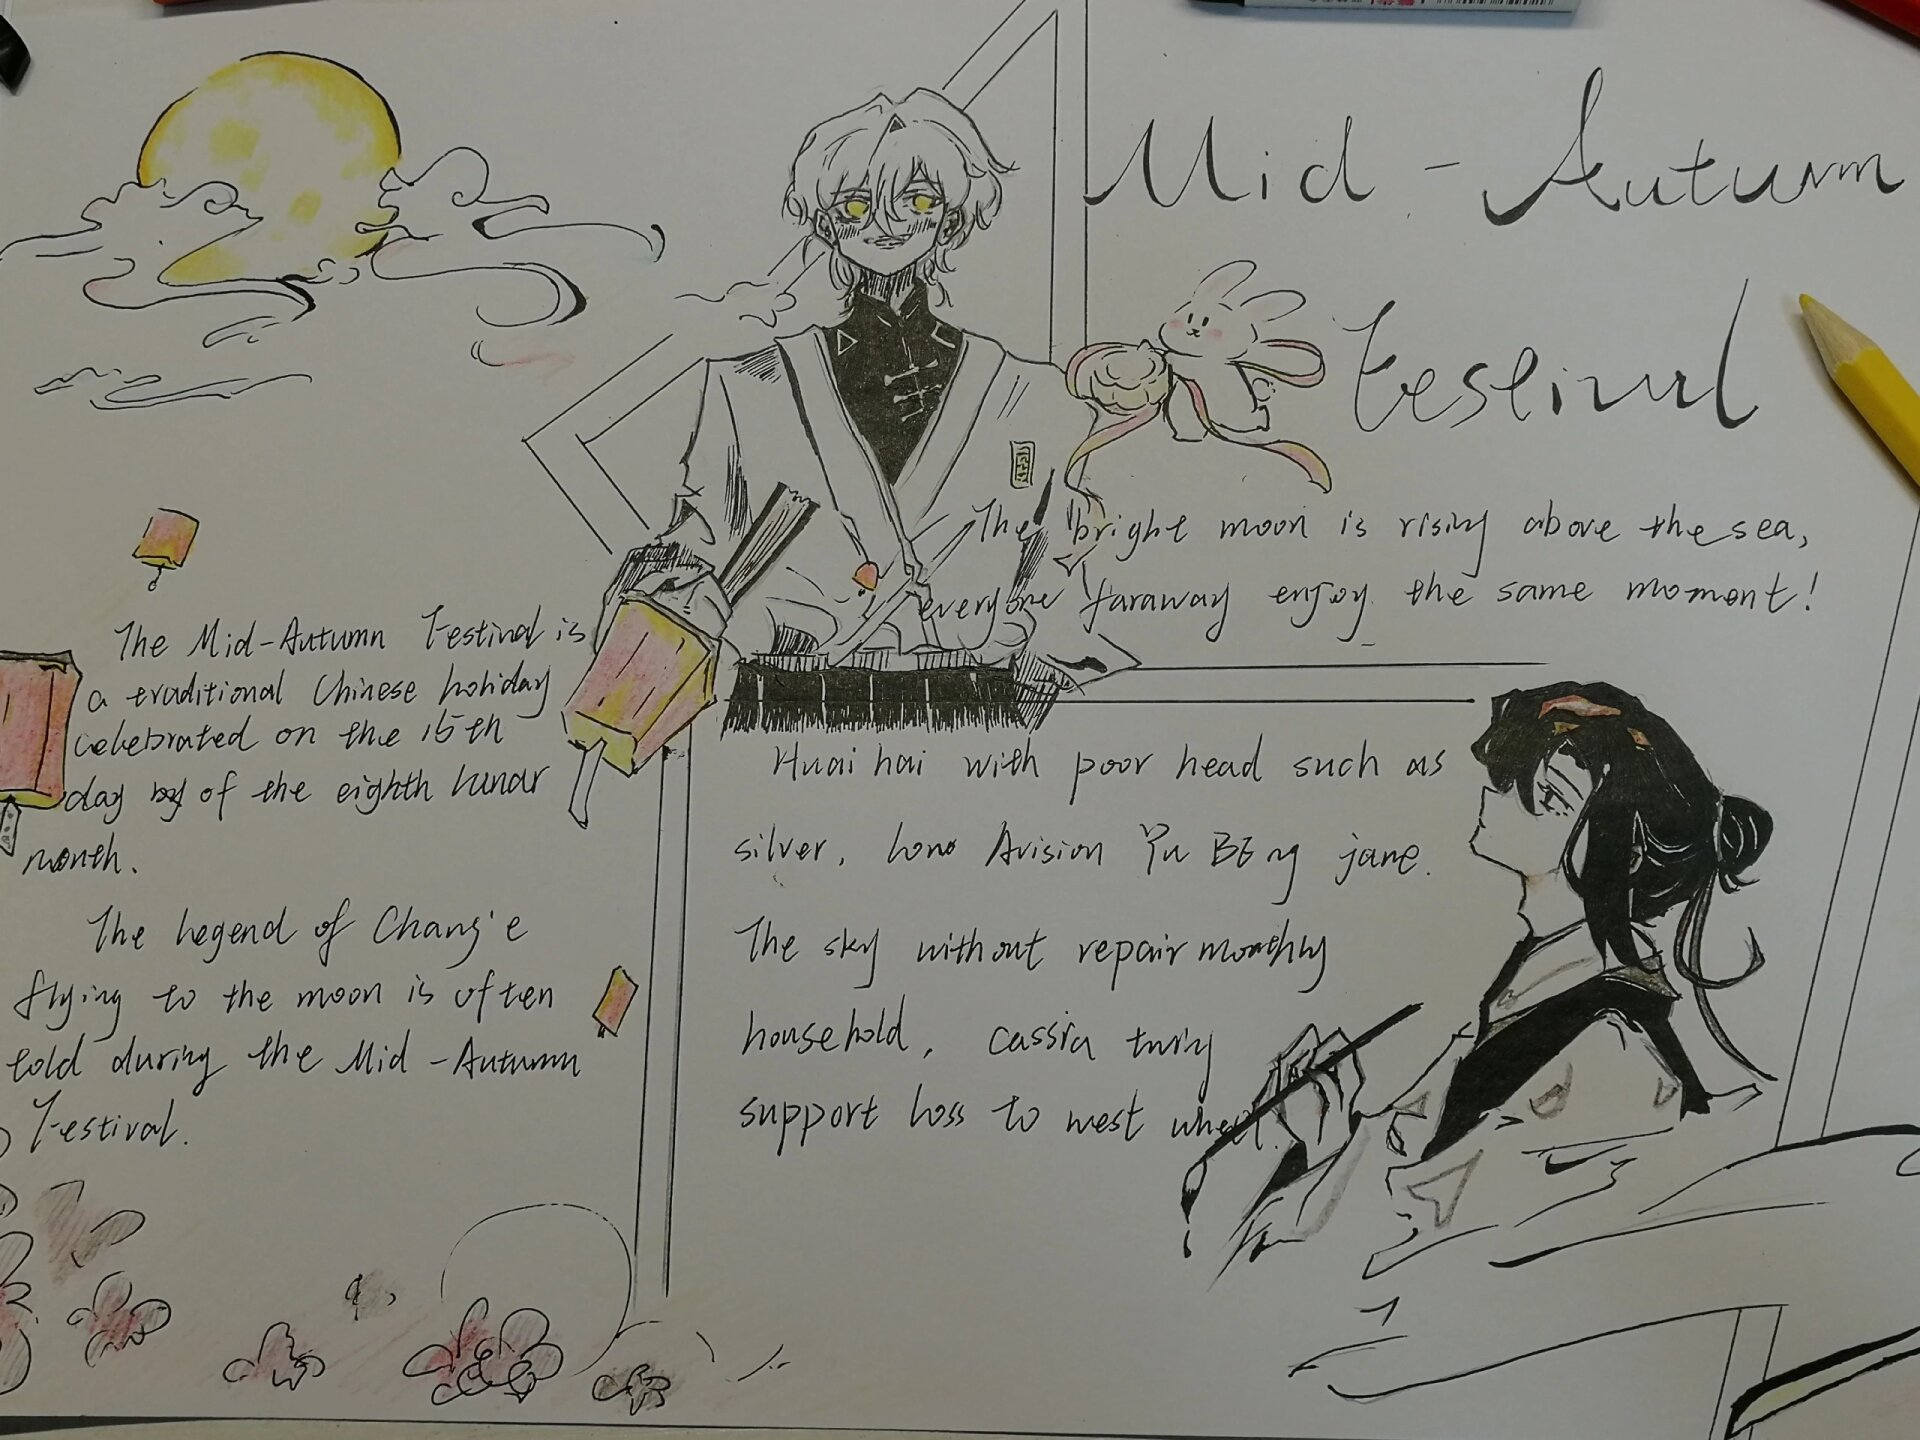 Mid-Autumn
Festival
The bright moon is rising above the sea,
everyone faraway enjoy the same moment!
The Mid-Autumn Festival is
a traditional Chinese holiday
celebrated on the 15th
day of the eighth lunar
month.
The legend of Chang'e
flying to the moon is often
told during the Mid-Autumn
Festival.
Huai hai with poor head such as
silver, long Avision Yu BEng jane.
The sky without repair monthly
household, cassia twig
support loss to west wheel.